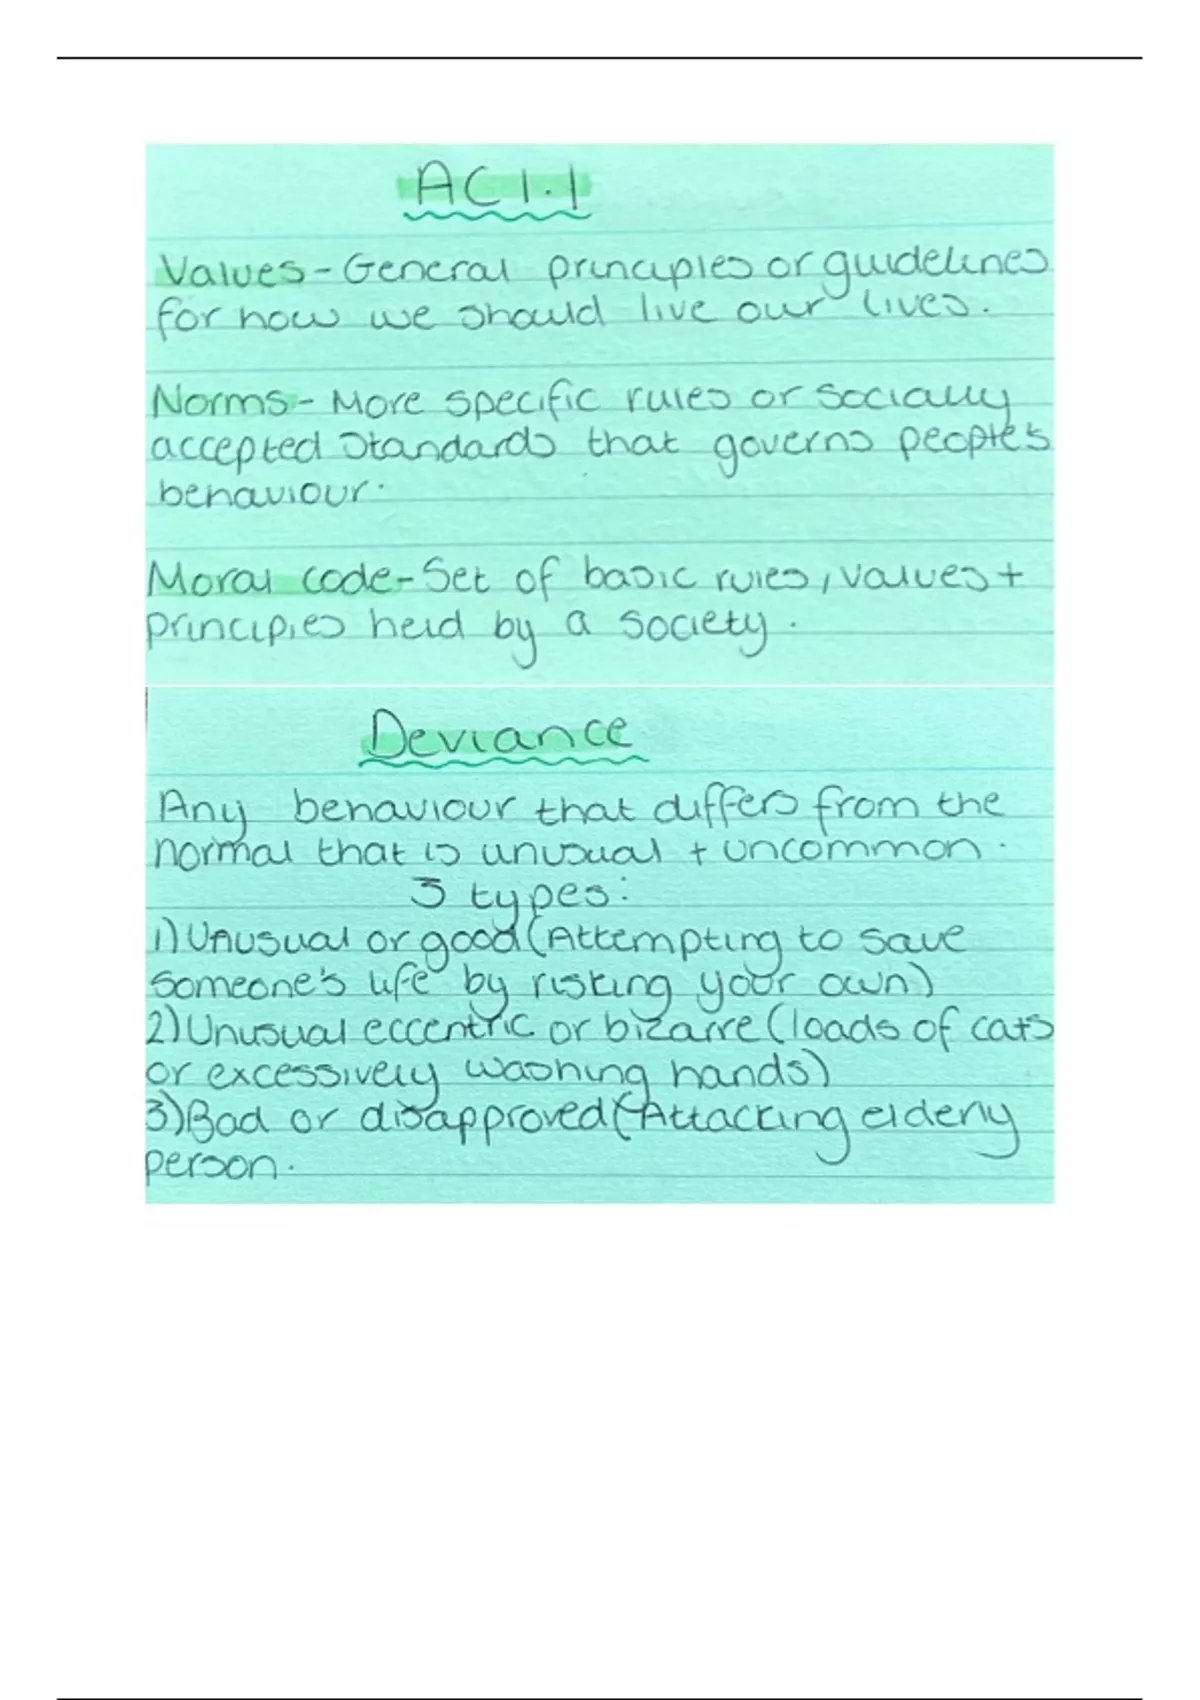 AC1.1
Values - General principles or guidelines
for how we should live our lives.
Norms - More specific rules or socially
accepted standards that governs people's
behaviour.
Moral code - Set of basic rules, values +
principles held by a society.
Deviance
Any behaviour that differs from the
normal that is unusual + uncommon.
3 types:
1) Unusual or good (Attempting to save
someone's life by risking your own)
2) Unusual eccentric or bizarre (loads of cats
or excessively washing hands)
3) Bad or disapproved (Attacking elderly
person.